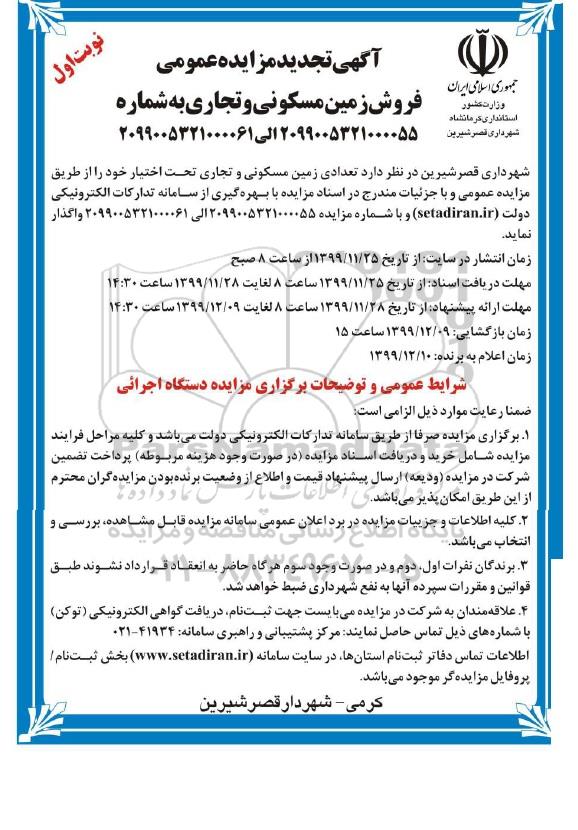 نوبت اول
جمهوری اسلامی ایران
وزارت کشور
استانداری کرمانشاه
شهرداری قصرشیرین
آگهی تجدید مزایده عمومی
فروش زمین مسکونی و تجاری به شماره
۲۰۹۹۰۰۵۳۲۱۰۰۰۰۵۵ الی ۲۰۹۹۰۰۵۳۲۱۰۰۰۰۶۱
شهرداری قصرشیرین در نظر دارد تعدادی زمین مسکونی و تجاری تحت اختیار خود را از طریق
مزایده عمومی و با جزئیات مندرج در اسناد مزایده با بهره‌گیری از سامانه تدارکات الکترونیکی
دولت (setadiran.ir) و با شماره مزایده ۲۰۹۹۰۰۵۳۲۱۰۰۰۰۵۵ الی ۲۰۹۹۰۰۵۳۲۱۰۰۰۰۶۱ واگذار
نماید.
زمان انتشار در سایت: از تاریخ ۱۳۹۹/۱۱/۲۵ از ساعت ۸ صبح
مهلت دریافت اسناد: از تاریخ ۱۳۹۹/۱۱/۲۵ ساعت ۸ لغایت ۱۳۹۹/۱۱/۲۸ ساعت ۱۴:۳۰
مهلت ارائه پیشنهاد: از تاریخ ۱۳۹۹/۱۱/۲۸ ساعت ۸ لغایت ۱۳۹۹/۱۲/۰۹ ساعت ۱۴:۳۰
زمان بازگشایی: ۱۳۹۹/۱۲/۰۹ ساعت ۱۵
زمان اعلام به برنده: ۱۳۹۹/۱۲/۱۰
شرایط عمومی و توضیحات برگزاری مزایده دستگاه اجرائی
ضمنا رعایت موارد ذیل الزامی است:
۱. برگزاری مزایده صرفا از طریق سامانه تدارکات الکترونیکی دولت می‌باشد و کلیه مراحل فرایند
مزایده شامل خرید و دریافت اسناد مزایده (در صورت وجود هزینه مربوطه) پرداخت تضمین
شرکت در مزایده (ودیعه) ارسال پیشنهاد قیمت و اطلاع از وضعیت برنده‌بودن مزایده‌گران محترم
از این طریق امکان‌پذیر می‌باشد.
۲. کلیه اطلاعات و جزییات مزایده در برد اعلان عمومی سامانه مزایده قابل مشاهده، بررسی و
انتخاب می‌باشد.
۳. برندگان نفرات اول، دوم و در صورت وجود سوم هرگاه حاضر به انعقاد قرارداد نشوند طبق
قوانین و مقررات سپرده آنها به نفع شهرداری ضبط خواهد شد.
۴. علاقه‌مندان به شرکت در مزایده می‌بایست جهت ثبت‌نام، دریافت گواهی الکترونیکی (توکن)
با شماره‌های ذیل تماس حاصل نمایند: مرکز پشتیبانی و راهبری سامانه: ۴۱۹۳۴-۰۲۱
اطلاعات تماس دفاتر ثبت‌نام استان‌ها، در سایت سامانه (www.setadiran.ir) بخش ثبت‌نام /
پروفایل مزایده‌گر موجود می‌باشد.
کرمی – شهردار قصرشیرین